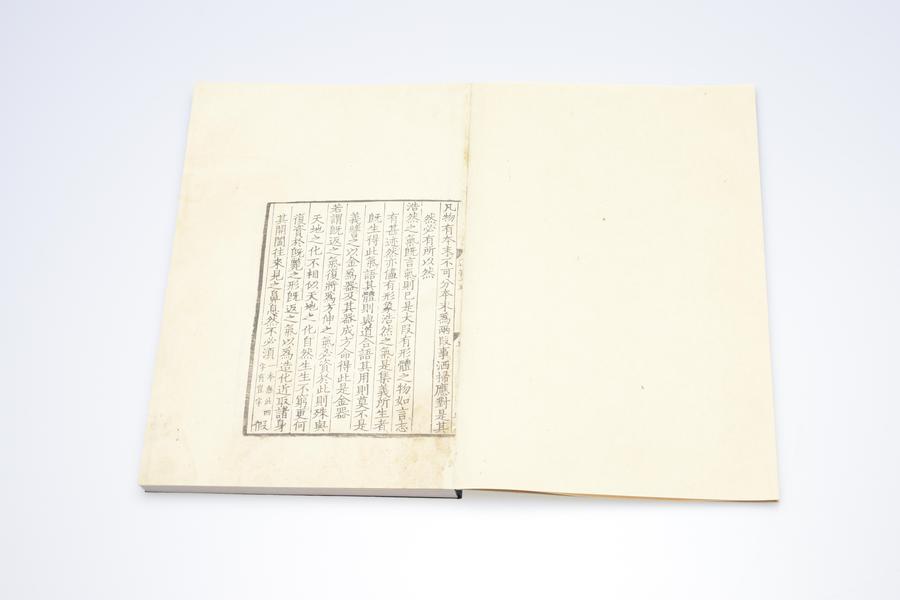 凡物有本末不可分本末爲兩段事洒掃應對是其
然必有所以然
浩然之氣旣言氣則已是大段有形體之物如言志
有甚迹然亦儘有形象浩然之氣是集義所生者
旣生得此氣語其體則與道合語其用則莫不是
義譬之以金爲器及其器成方命得此是金器
若謂旣返之氣復將爲方伸之氣必資於此則殊與
天地之化不相似天地之化自然生生不窮更何
復資於旣斃之形旣返之氣以爲造化近取諸身
其開闔往來見之鼻息然不必須
一本無此四
字有豈字
假